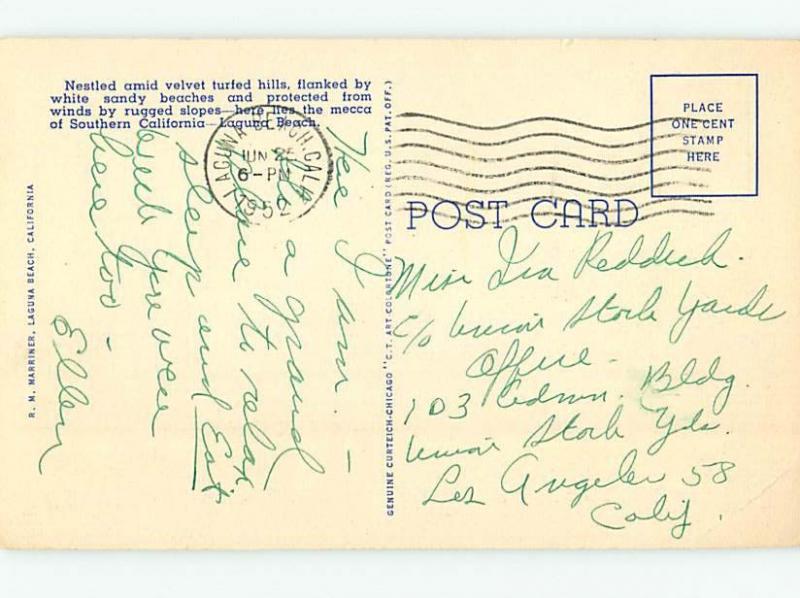 Nestled amid velvet turfed hills, flanked by
white sandy beaches and protected from
winds by rugged slopes—here lies the mecca
of Southern California—Laguna Beach.
LAGUNA BEACH, CALIF.
JUN 25
6-PM
1952
PLACE
ONE CENT
STAMP
HERE
POST CARD
R. M. MARRINER, LAGUNA BEACH, CALIFORNIA
GENUINE CURTEICH-CHICAGO "C.T. ART-COLORTONE" POST CARD (REG. U.S. PAT. OFF.)
Here I am -
a grand
place to relax,
sleep and Eat.
Wish you were
here too -
Ellen
Miss Ira Reddick.
c/o Union Stock Yards
Office -
103 Admn. Bldg.
Union Stock Yds.
Los Angeles 58
Calif.